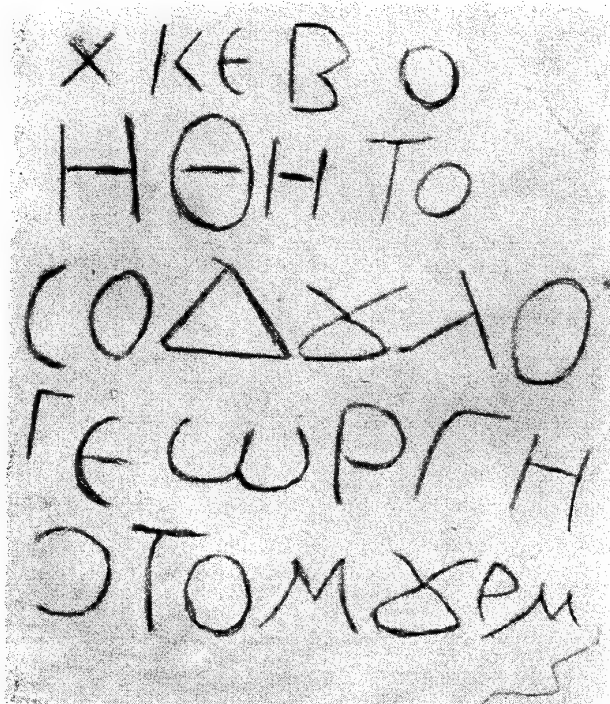 × ΚΕ ΒΟ
ΗΘΗ ΤΟ
CΟΔȢΛΟ
ΓΕωΡΓΗ
ϽΤΟΜȢΡΜ